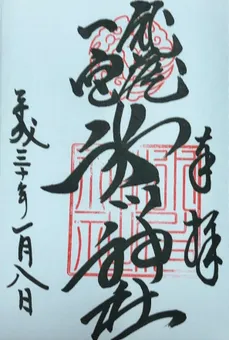 奉拝
武蔵
一宮
氷川神社
平成三十年一月八日